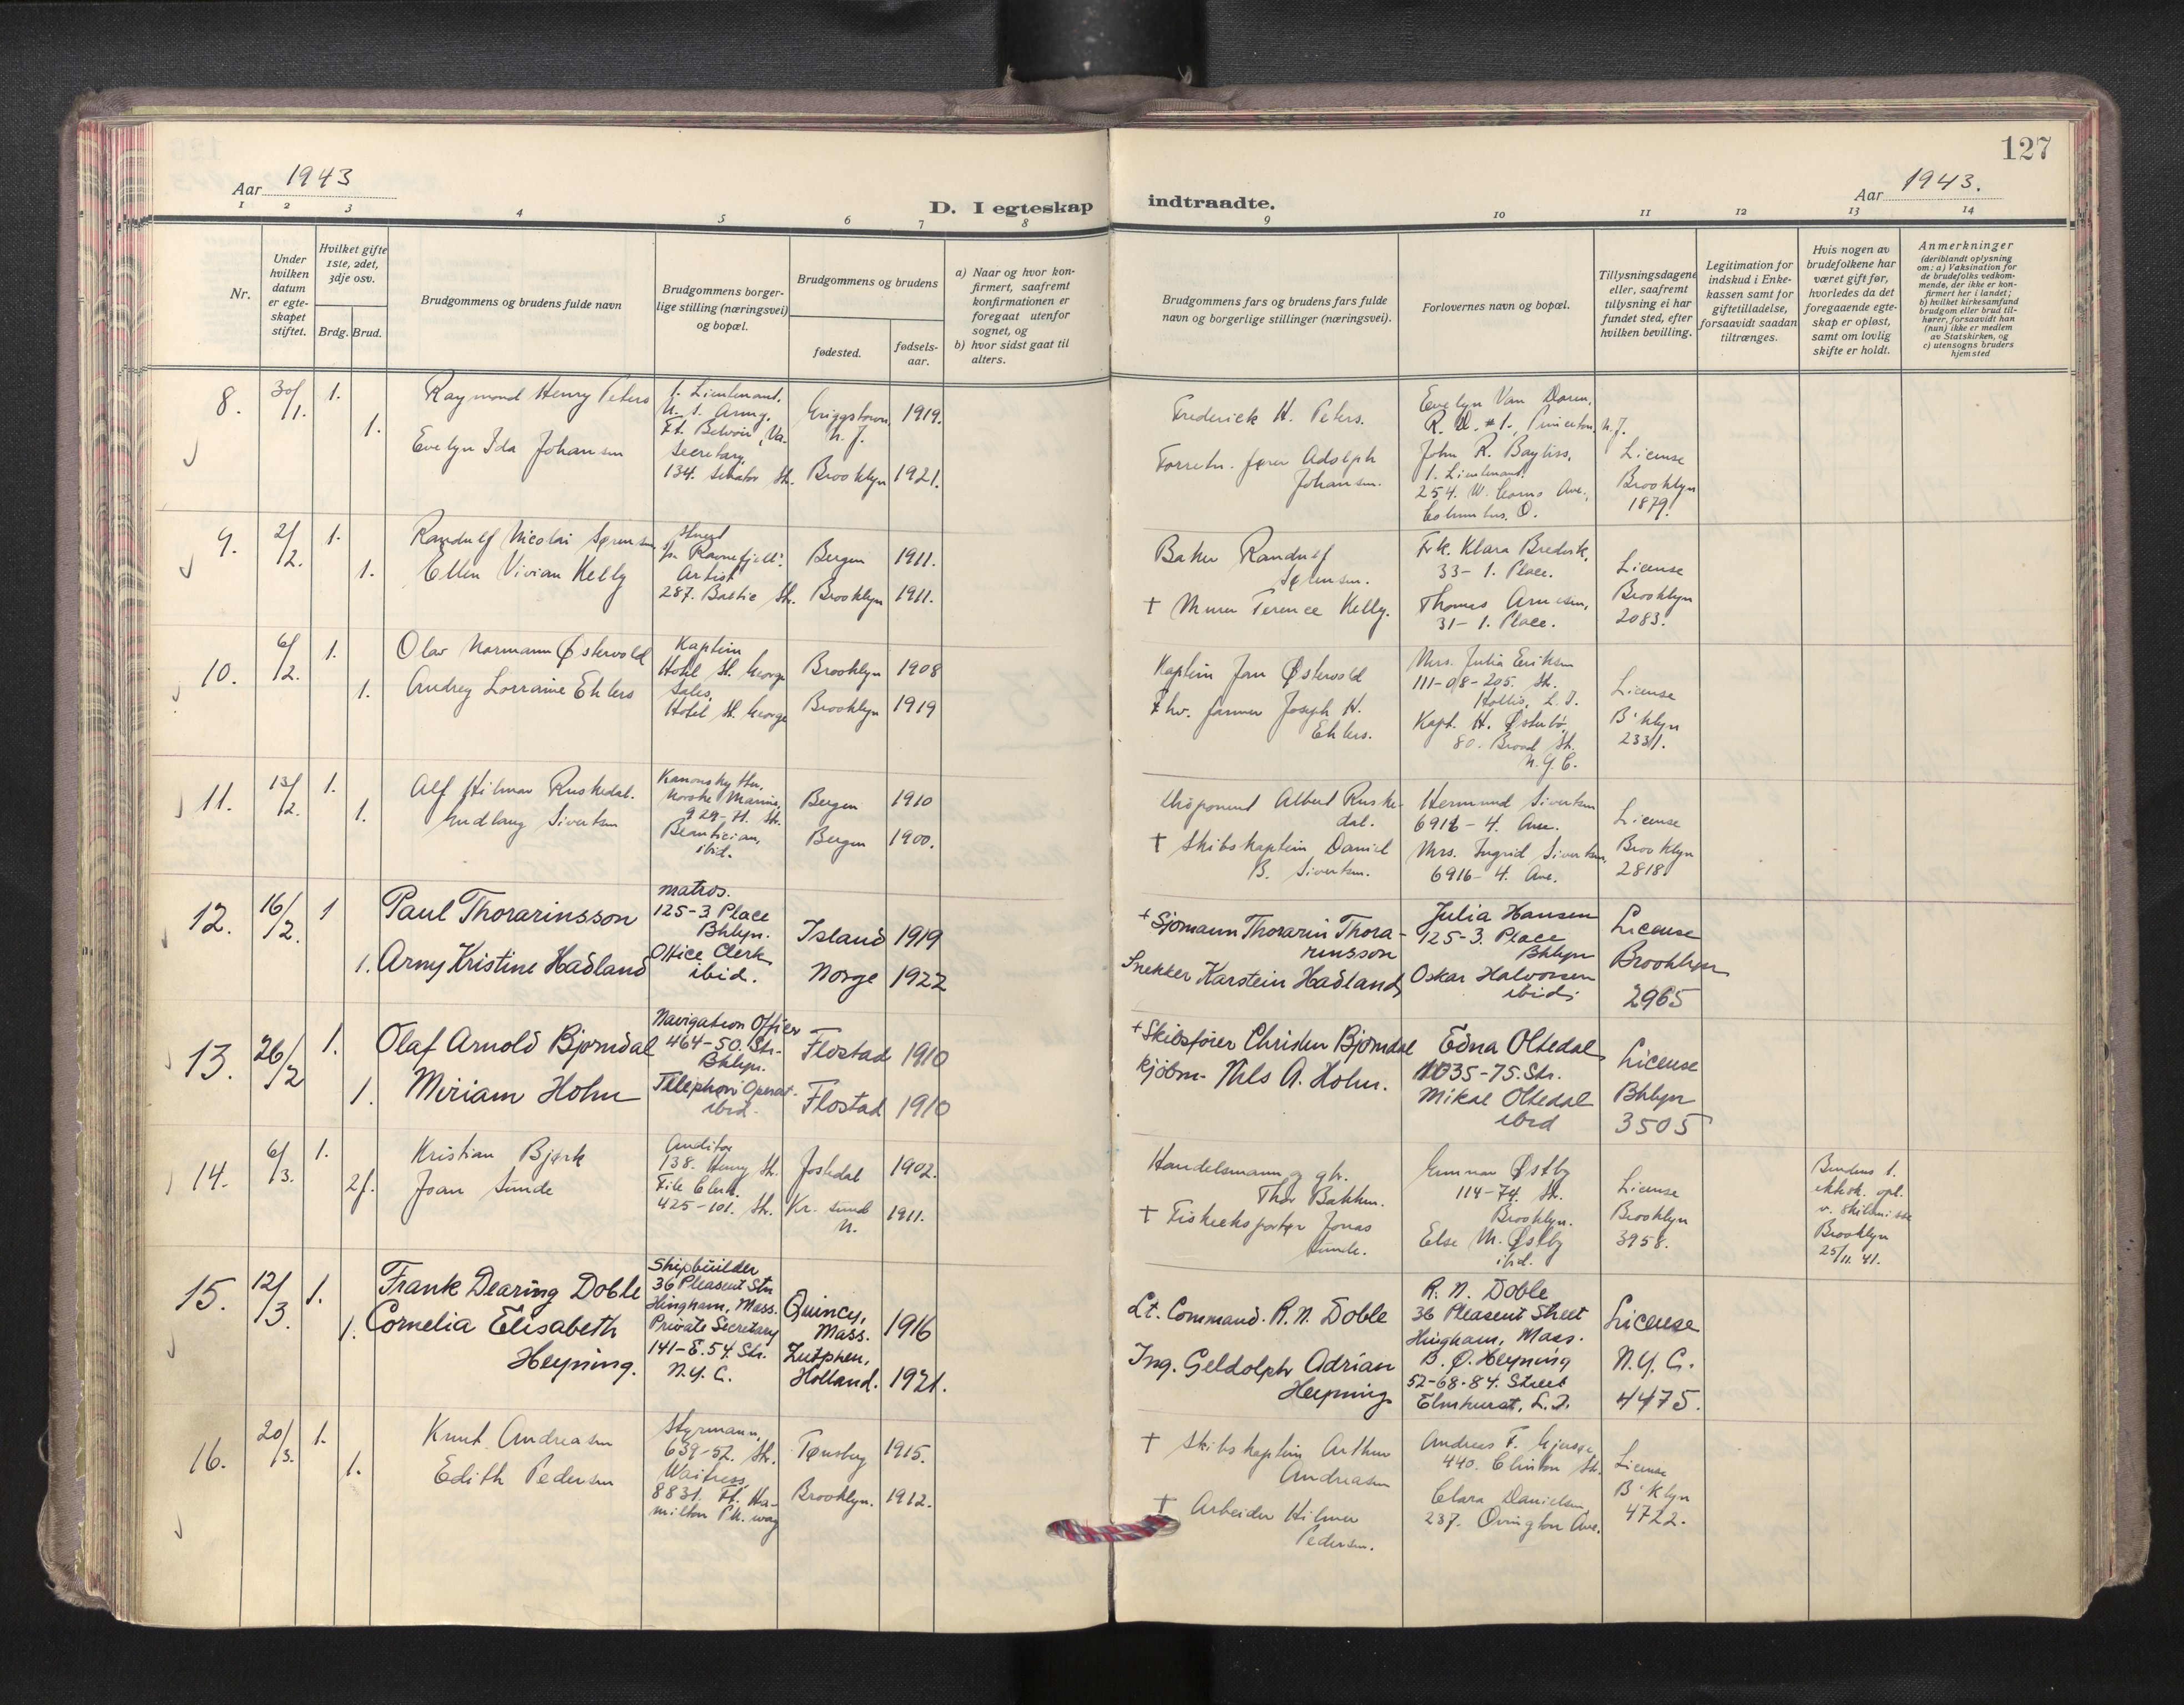 127
Aar 1943
Aar 1943.
D. I egteskap
indtraadte.
1 2 3 4 5 6 7 8 9 10 11 12 13 14
Nr.
Under
hvilken
datum
er egte-
skapet
stiftet.
Hvilket gifte
1ste, 2det,
3dje osv.
Brdg. Brud.
Brudgommens og brudens fulde navn
Brudgommens borger-
lige stilling (næringsvei)
og bopæl.
Brudgommens og brudens
fødested.
fødsels-
aar.
a) Naar og hvor kon-
firmert, saafremt
konfirmationen er
foregaat utenfor
sognet, og
b) hvor sidst gaat til
alters.
Brudgommens fars og brudens fars fulde
navn og borgerlige stillinger (næringsvei).
Forlovernes navn og bopæl.
Tillysningsdagene
eller, saafremt
tillysning ei har
fundet sted, efter
hvilken bevilling.
Legitimation for
indskud i Enke-
kassen samt for
giftetilladelse,
forsaavidt saadan
tiltrænges.
Hvis nogen av
brudefolkene har
været gift før,
hvorledes da det
foregaaende egte-
skap er opløst,
samt om lovlig
skifte er holdt.
Anmerkninger
(deriblandt oplysning
om: a) Vaksination for
de brudefolks vedkom-
mende, der ikke er kon-
firmert her i landet;
b) hvilket kirkesamfund
brudgom eller brud til-
hører, forsaavidt han
(hun) ikke er medlem
av Statskirken, og
c) utensogns bruders
hjemsted
8.
30/1.
1.
1.
Raymond Henry Peters
Evelyn Ida Johansen
1. Lieutenant.
U. S. Army.
Ft. Belvoir, Va.
Secretary,
134. Senator Str.
Griggstown
N. J.
1919.
Brooklyn 1921.
Frederick H. Peters.
Forretn. fører Adolph
Johansen.
Evelyn Van Doren,
R. D. #1., Princeton, N.J.
John R. Bayliss,
1. Lieutenant.
254. W. Como Ave.,
Columbus. O.
License
Brooklyn
1879.
9.
2/2.
1.
1.
Randulf Nicolai Sørensen
Ellen Vivian Kelly
Stuert
Artist
287. Baltic Str.
Bergen 1911.
Brooklyn 1911.
Baker Randulf
Sørensen.
† Murer Terence Kelly.
Frk. Klara Bredvik,
33- 1. Place.
Thomas Arnesen,
31- 1. Place.
License
Brooklyn
2083.
10.
6/2.
1.
1.
Olav Normann Østervold
Audrey Lorraine Ehlers
Kaptein
Hotel St. George
Sales,
Hotel St. George
Brooklyn 1908
Brooklyn 1919
Kaptein Jon Østervold
Fhv. farmer Joseph H.
Ehlers.
Mrs. Julia Eriksen
111-08-205. Str.
Hollis, L. I.
Kapt. H. Østebø,
80. Broad Str.
N. Y. C.
License
B'klyn
2331.
11.
13/2.
1.
1.
Alf Hilmar Ruskedal.
Gudlaug Sivertsen
Kanonskytter,
Norske Marine,
929-41. St.
Beautician,
ibid.
Bergen 1910
Bergen 1900.
Disponent Albert Ruske-
dal.
† Skibskaptein Daniel
B. Sivertsen.
Hermund Sivertsen
6916-4. Ave.
Mrs. Ingrid Sivertsen,
6916-4. Ave.
License
Brooklyn
2818.
12.
16/2.
1
1.
Paul Thorarinsson
Arny Kristine Hadland
matros.
125-3 Place
Bklyn.
Office Clerk
ibid.
Island 1919
Norge 1922
+ Sjømann Thorarin Thora-
rinsson
Snekker Karstein Hadland
Julia Hansen
125-3. Place
Bklyn
Oskar Halvorsen
ibid.
License
Brooklyn
2965
13.
26/2
1.
1.
Olaf Arnold Bjørndal
Miriam Holm
Navigation Officer
464-50. Str.
Bklyn.
Telephon Operat.
ibid.
Flostad 1910
Flostad 1910
+ Skibsfører Christen Bjørndal
Kjöbm. Nils A. Holm.
Edna Oltedal
1035-75. Str.
Mikal Oltedal
ibid
License
Bklyn
3505
14.
6/3.
1.
2f.
Kristian Bjørk
Joan Sunde
Auditor
138. Henry Str.
File Clerk.
425-101. Str.
Jostedal 1902.
Kr. sund
N.
1911.
Handelsmann og gbr.
Thor Bakken.
† Fiskeeksportør Jonas
Sunde.
Gunnar Østby
114-74. Str.
Brooklyn.
Else M. Østby
ibid.
License
Brooklyn
3958.
Brudens 1.
ektesk. opl.
v. skilsmisse
Brooklyn
25/11. 41.
15.
12/3.
1.
1.
Frank Dearing Doble
Cornelia Elisabeth
Heyning.
Shipbuilder
36 Pleasent Str
Hingham, Mass.
Private Secretary
141-E. 54 Str.
N.Y.C.
Quincy,
Mass.
1916
Zutphen,
Holland.
1921.
Lt. Command. R. N. Doble
Ing. Geldolph Adrian
Heyning
R. N. Doble
36 Pleasent Street
Hingham, Mass.
B. O. Heyning
52-68-84. Street
Elmhurst, L. I.
License
N. Y. C.
4475.
16.
20/3.
1.
1.
Knut Andreasen
Edith Pedersen
Styrmann,
639-52. Str.
Waitress,
8831. Ft. Ha-
milton Pk. way
Tønsberg 1915.
Brooklyn. 1912.
† Skibskaptein Arthur
Andreasen
† Arbeider Hilmer
Pedersen.
440. Clinton Str.
Clara Danielsen,
237. Ovington Ave.
License
B'klyn
4722.